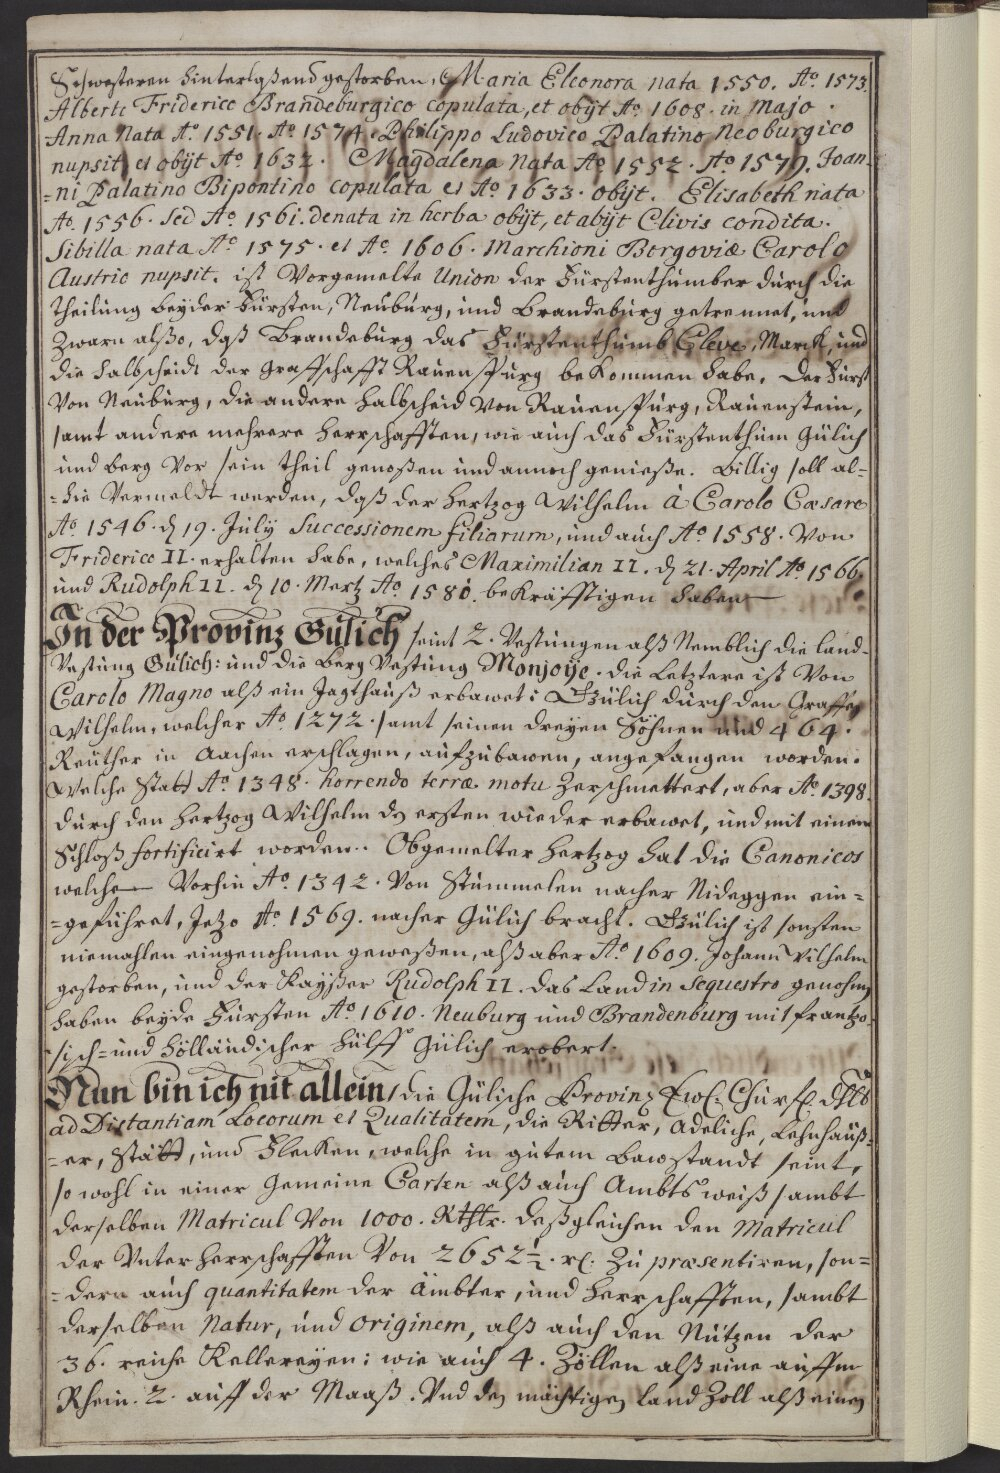 Schwesteren hinterlaßend gestorben, Maria Eleonora nata 1550. Aō. 1573.
Alberto Friderico Brandeburgico copulata, et obijt Aō. 1608. in Majo.
Anna Nata Aō. 1551. Aō 1574. Philippo Ludovico Palatino Neoburgico
nupsit, et obijt Aō. 1632. Magdalena Nata Aō 1552. Aō 1579. Joan-
=ni Palatino Bipontino copulata et Aō. 1633. obijt. Elisabeth nata
Aō. 1556. sed Aō. 1561. denata in herba obijt, et abijt Clivis condita.
Sibilla nata Aō 1575. et Aō 1606. Marchioni Borgoviæ Carolo
Austrio nupsit. ist Vorgemelte Union der Fürstenthümber durch die
theilung beyder Fürsten, Neuburg, und Brandeburg getrennet, und
Zwarn alßo, daß Brandeburg das Fürstenthumb Cleve, Marck, und
die halbscheidt der Graffschafft Rauenspurg bekommen habe. Der Fürst
Von Neuburg, die andere halbscheid Von Rauenspurg, Rauenstein,
samt andere mehrere Herrschafften, wie auch das Fürstenthum Gülich
und Berg Vor sein theil genoßen und annoch genieße. Billig soll al-
=hie Vermeldt werden, daß der Hertzog Wilhelm à Carolo Cæsare
Aō. 1546. d 19. July Successionem filiarum, und auch Aō 1558. Von
Friderico II. erhalten habe, welches Maximilian II. d 21. April Aō. 1566.
und Rudolph II. d 10. Mertz Aō. 1580. bekräfftigen haben
In der Provinz Gülich seint 2. Vestungen alß Nemblich die land-
Vestung Gülich: und die Berg Vestung Monjoije. die Letztere ist Von
Carolo Magno alß ein Jagthauß erbawet: Gülich durch den Graffen
Wilhelm, welcher Aō. 1272. samt seinen dreyen Söhnen und 464.
Reuther in Aachen erschlagen, aufzubawen, angefangen worden.
Welche Statt Aō. 1348. horrendo terræ motu Zerschmettert, aber Aō. 1398.
durch den Hertzog Wilhelm den ersten wieder erbawet, und mit einem
Schloß fortificirt worden. Obgemelter Hertzog hat die Canonicos
welche Vorhin Aō. 1342. Von Stummelen nacher Nideggen ein-
=geführet, Jetzo Aō. 1569. nacher Gülich bracht. Gülich ist sonsten
niemahlen eingenohmen geweßen, alß aber Aō. 1609. Johann Wilhelm
gestorben, und der Kayßer Rudolph II. das Land in Sequestro genohmen
haben beyde Fürsten Aō. 1610. Neuburg und Brandenburg mit frantzö-
sisch= und Holländischer Hülff Gülich erobert.
Nun bin ich nit allein, die Gülische Provinz Ewl: Churfl dhlt
ad Distantiam Locorum et Qualitatem, die Ritter, Adeliche, Lehnhäuß-
=er, Stätt, und Flecken, welche in gutem Bawstandt seint,
so wohl in einer Gemeine Carten alß auch Ambts weiß sambt
derselben Matricul Von 1000. Rthlr. deßgleichen den Matricul
der Unter Herrschafften Von 2652½. rl. Zu præsentiren, son=
=dern auch quantitatem der Ämbter, und Herrschafften, sambt
derselben Natur, und originem, alß auch den Nutzen der
36. reiche Kellereyen: wie auch 4. Zöllen alß eine auffm
Rhein. 2. auff der Maaß. Und den mächtigen land Zoll alß einen